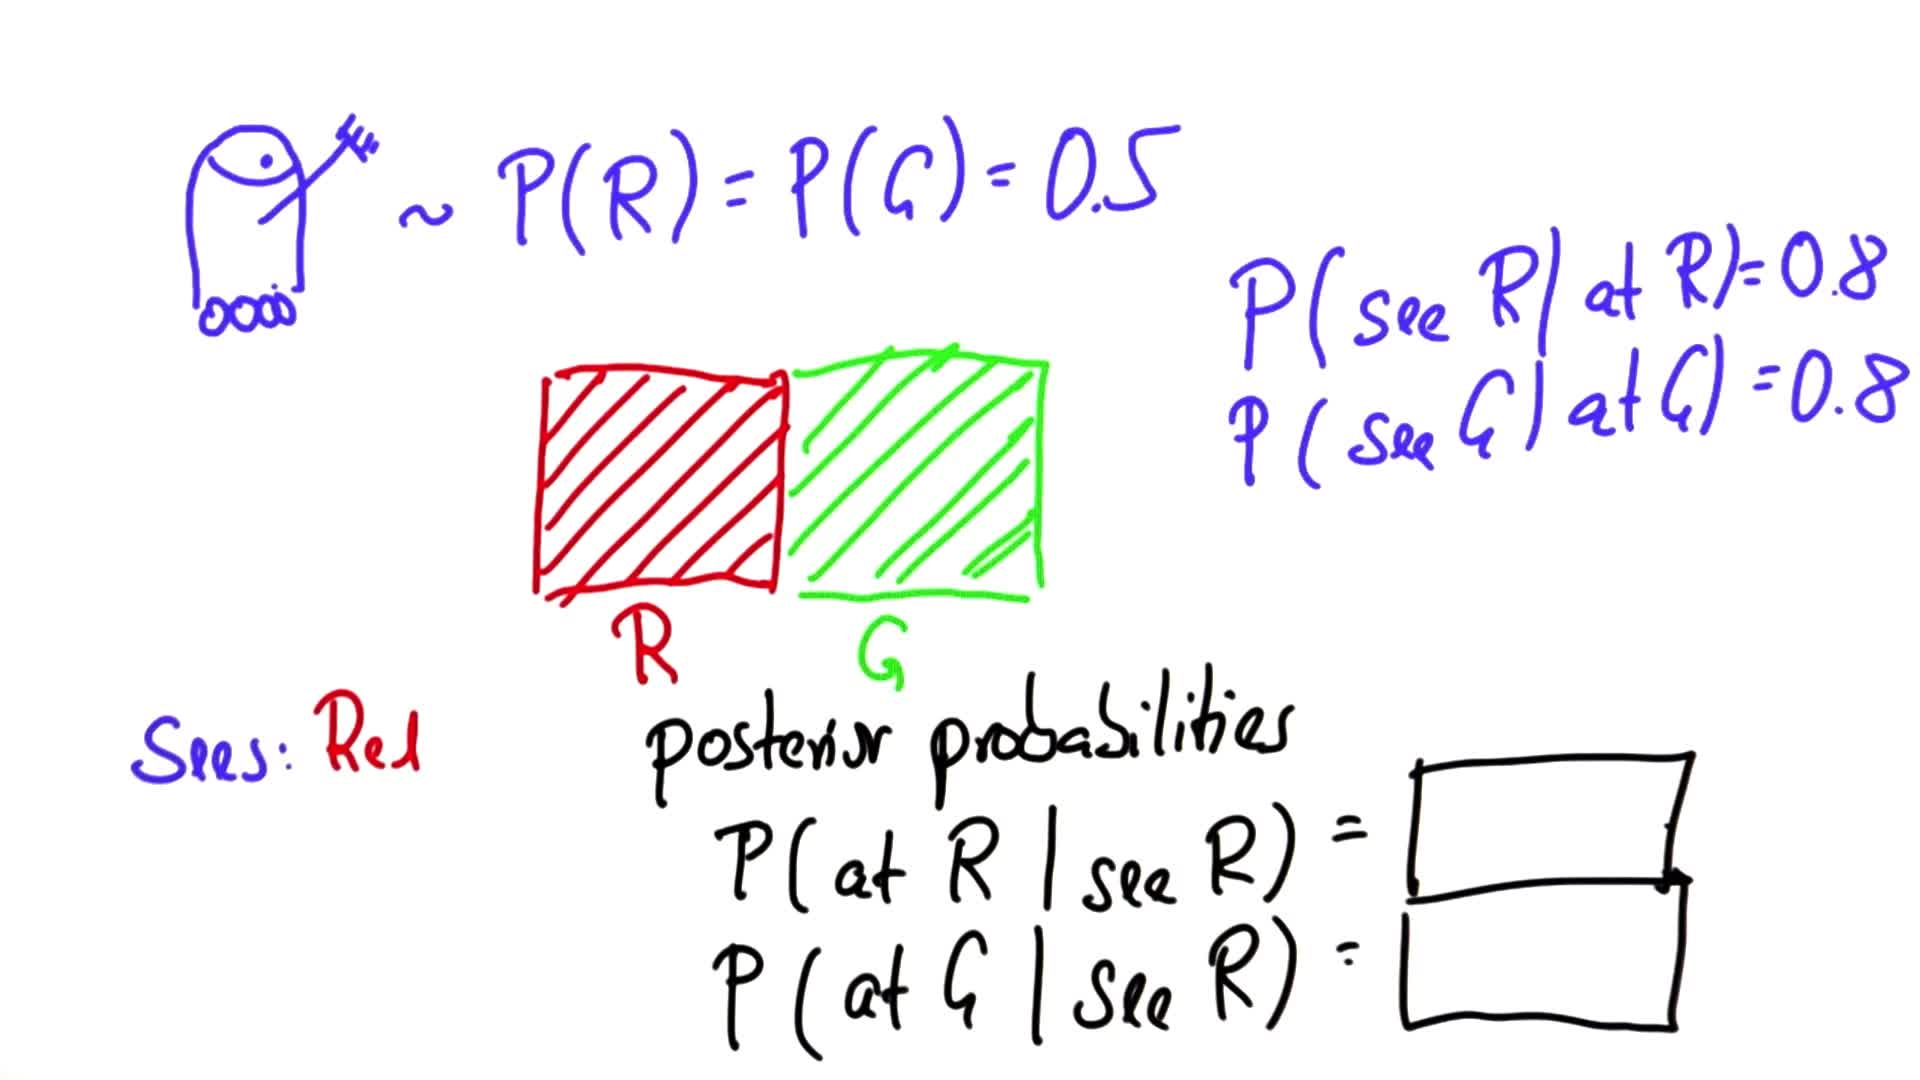 ~ P(R) = P(G) = 0.5
P(see R| at R) = 0.8
P(see G| at G) = 0.8
R G
Sees: Red
posterior probabilities
P(at R | see R) =
P(at G | see R) =